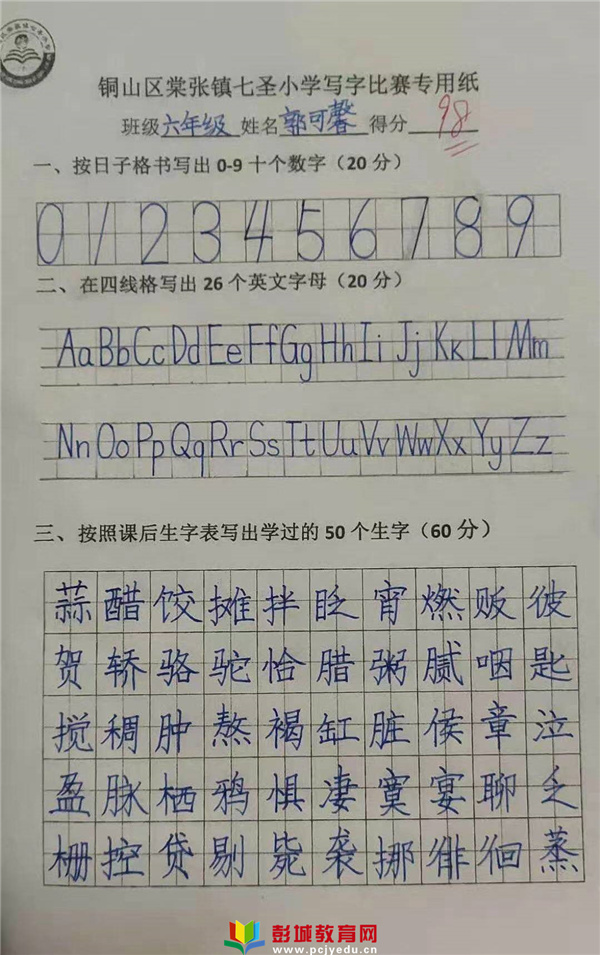 铜山区棠张镇七圣小学写字比赛专用纸
班级六年级 姓名郭可馨 得分98
一、按日子格书写出 0-9 十个数字（20 分）
0 1 2 3 4 5 6 7 8 9
二、在四线格写出 26 个英文字母（20 分）
Aa Bb Cc Dd Ee Ff Gg Hh Ii Jj Kk Ll Mm
Nn Oo Pp Qq Rr Ss Tt Uu Vv Ww Xx Yy Zz
三、按照课后生字表写出学过的 50 个生字（60 分）
蒜醋饺摊拌眨宵燃贩彼
贺轿骆驼恰腊粥腻咽匙
搅稠肿熬褐缸脏侯章泣
盈脉栖鸦惧凄寞宴聊乏
栅控贷剔毙袭挪徘徊蒸
彭城教育网
www.pcjyedu.cn